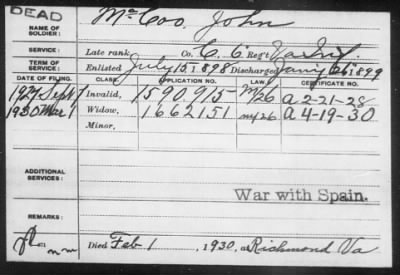 DEAD
NAME OF SOLDIER: McCoo, John
SERVICE: Late rank Co. C, 6 Reg't Va Inf.
TERM OF SERVICE: Enlisted July 15 1898 Discharged Jan'y 26 1899
DATE OF FILING. CLASS. APPLICATION NO. LAW. CERTIFICATE NO.
1927 Sept 7 Invalid, 1590,915 M/26 A 2-21-28
1930 Mar 1 Widow, 1662151 M/26 A 4-19-30
Minor,
ADDITIONAL SERVICES:
War with Spain.
REMARKS:
Died Feb 1, 1930, at Richmond Va